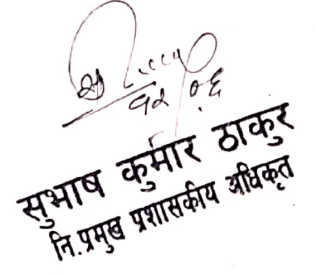 सुभाष कुमार ठाकुर
नि.प्रमुख प्रशासकीय अधिकृत